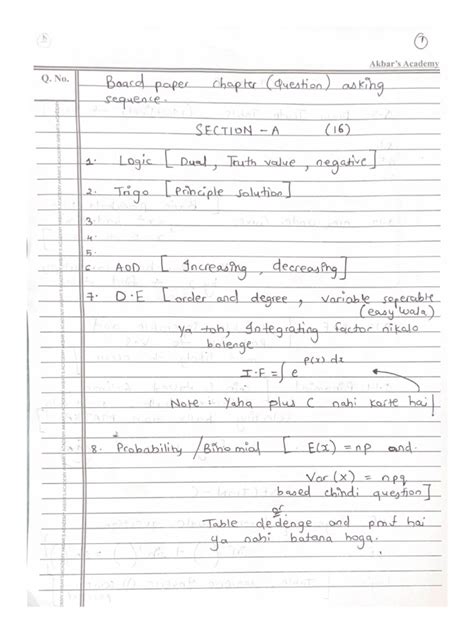 1
Akbar's Academy
Q. No.
Board paper chapter (Question) asking
sequence.
SECTION - A (16)
1. Logic [ Dual, Truth value, negative]
2. Trigo [Principle solution]
3
4.
5.
6. AOD [ Increasing, decreasing]
7. D.E [order and degree, variable seperable
(easy wala)
ya toh, Integrating factor nikalo
bolenge
I.F = ∫ e^P(x) dx
Note :- Yaha plus C nahi karte hai]
8. Probability / Binomial [ E(x) = np and.
Var (x) = npq
based chindi question]
or
Table dedenge and pmf hai
ya nahi batana hoga.